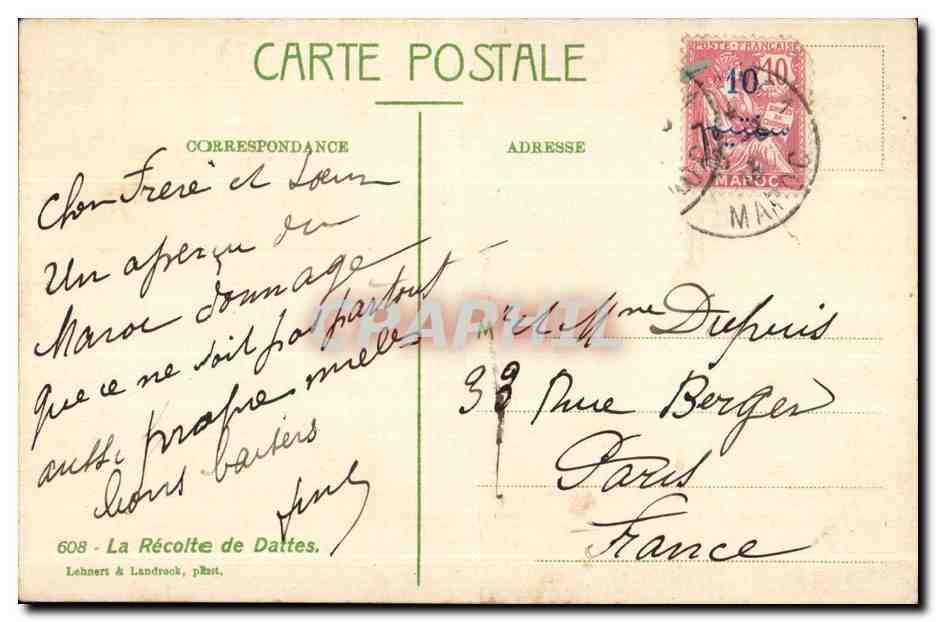 CARTE POSTALE
CORRESPONDANCE
ADRESSE
POSTE FRANÇAISE
10 10
MAROC
MAROC
Cher Frère et Soeur
Un aperçu du
Maroc dommage
que ce ne soit pas partout
aussi propre mille
bons baisers
Mr et Mme Dupuis
33 Rue Berger
Paris
France
CRAPHIL
608 - La Récolte de Dattes.
Lehnert & Landrock, phot.